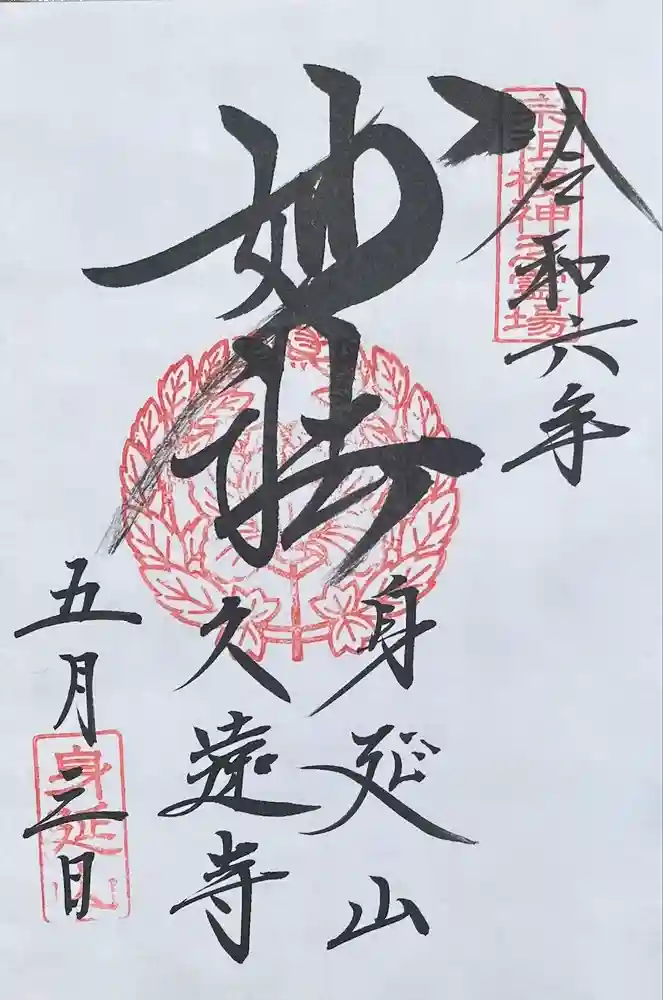 宗祖棲神之霊場
令和六年
妙法
身延山
久遠寺
五月三日
身延山